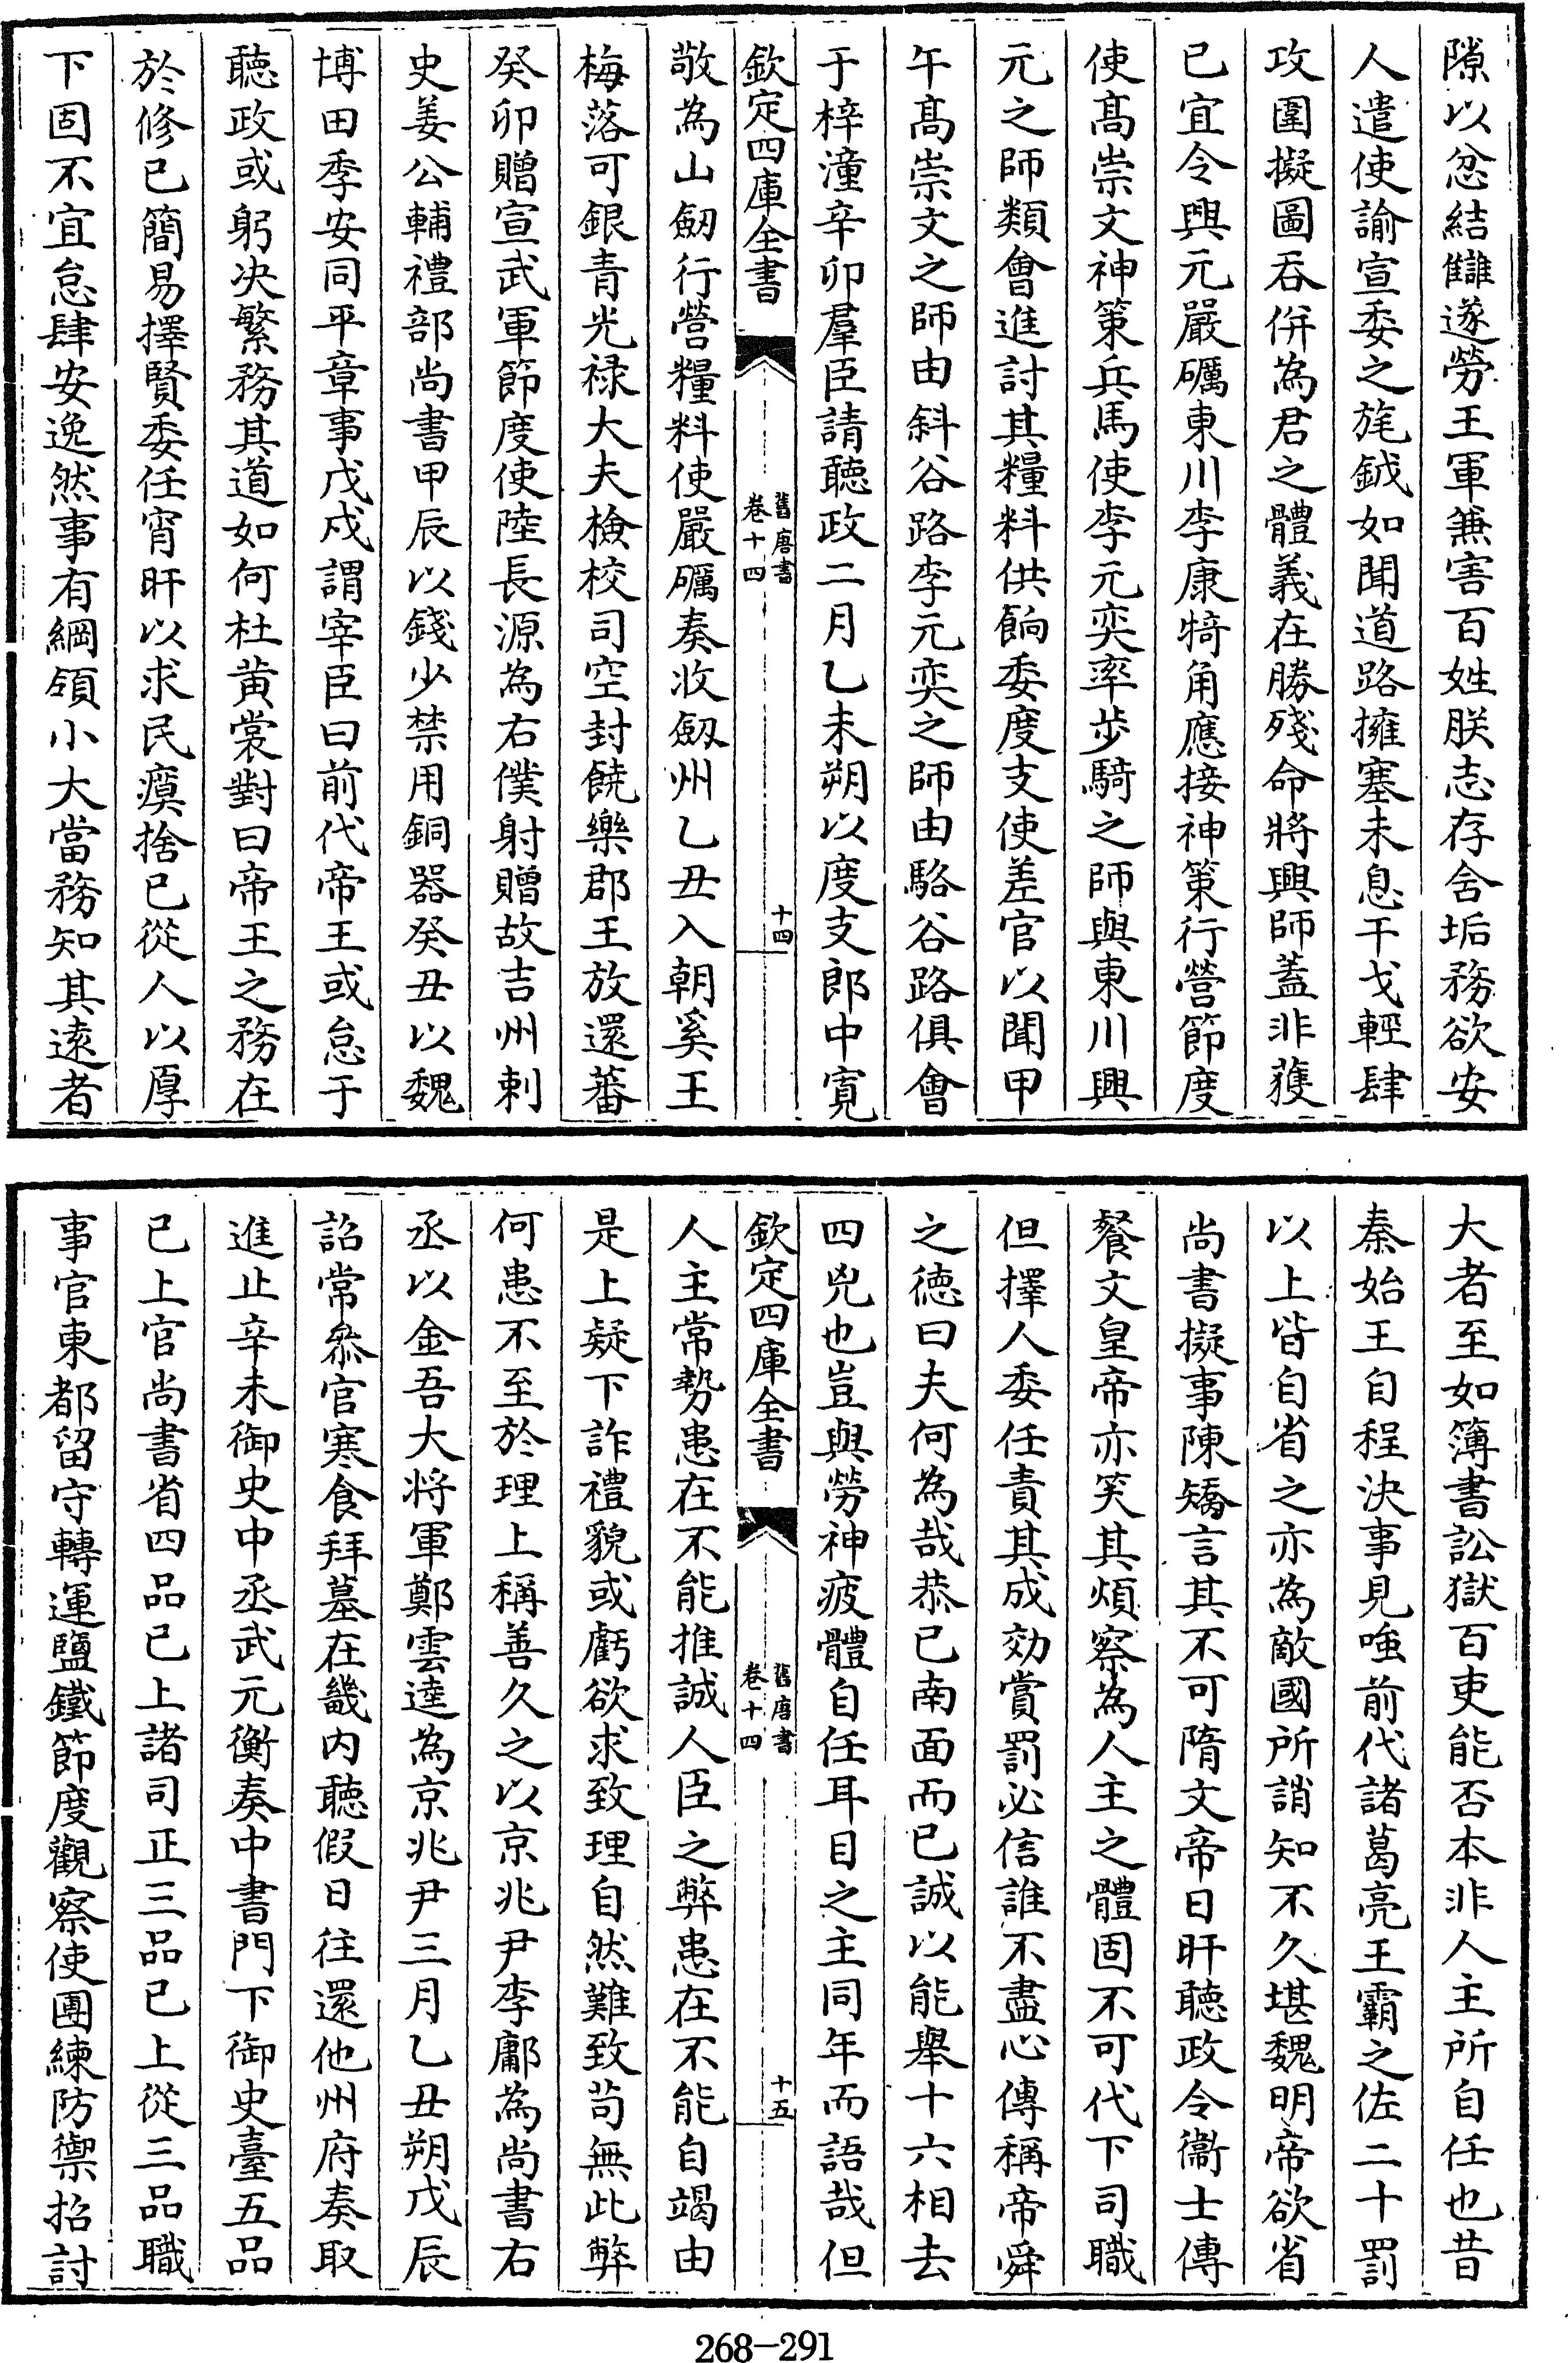 隙以忿結讎遂勞王軍兼害百姓朕志存含垢務欲安
人遣使諭宣委之旄鉞如聞道路擁塞未息干戈輕肆
攻圍擬圖吞併為君之體義在勝殘命將興師蓋非獲
已宜令興元嚴礪東川李康犄角應接神策行營節度
使髙崇文神策兵馬使李元奕率歩騎之師與東川興
元之師類會進討其糧料供餉委度支使差官以聞甲
午髙崇文之師由斜谷路李元奕之師由駱谷路俱會
于梓潼辛卯羣臣請聽政二月乙未朔以度支郎中寛
欽定四庫全書
舊唐書
卷十四
十四
敬為山劒行營糧料使嚴礪奏收劒州乙丑入朝奚王
梅落可銀青光禄大夫檢校司空封饒樂郡王放還蕃
癸卯贈宣武軍節度使陸長源為右僕射贈故吉州刺
史姜公輔禮部尚書甲辰以錢少禁用銅器癸丑以魏
博田季安同平章事戊戍謂宰臣曰前代帝王或怠于
聽政或躬決繁務其道如何杜黄裳對曰帝王之務在
於修已簡易擇賢委任宵旰以求民瘼捨已從人以厚
下固不宜怠肆安逸然事有綱領小大當務知其逺者
大者至如簿書訟獄百吏能否本非人主所自任也昔
秦始王自程決事見嗤前代諸葛亮王霸之佐二十罰
以上皆自省之亦為敵國所誚知不久堪魏明帝欲省
尚書擬事陳矯言其不可隋文帝日旰聽政令衞士傳
餐文皇帝亦笑其煩察為人主之體固不可代下司職
但擇人委任責其成効賞罰必信誰不盡心傳稱帝舜
之徳曰夫何為哉恭已南面而已誠以能舉十六相去
四兇也豈與勞神疲體自任耳目之主同年而語哉但
欽定四庫全書
舊唐書
卷十四
十五
人主常勢患在不能推誠人臣之弊患在不能自竭由
是上疑下詐禮貌或虧欲求致理自然難致苟無此弊
何患不至於理上稱善久之以京兆尹李鄘為尚書右
丞以金吾大将軍鄭雲逵為京兆尹三月乙丑朔戊辰
詔常叅官寒食拜墓在畿内聽假日往還他州府奏取
進止辛未御史中丞武元衡奏中書門下御史臺五品
已上官尚書省四品已上諸司正三品已上從三品職
事官東都留守轉運鹽鐵節度觀察使團練防禦招討
268-291